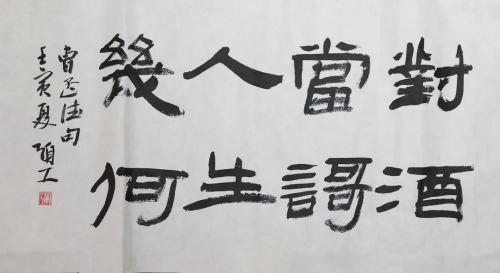 對酒
當謌
人生
幾何
曹孟德句
壬寅夏 頌工